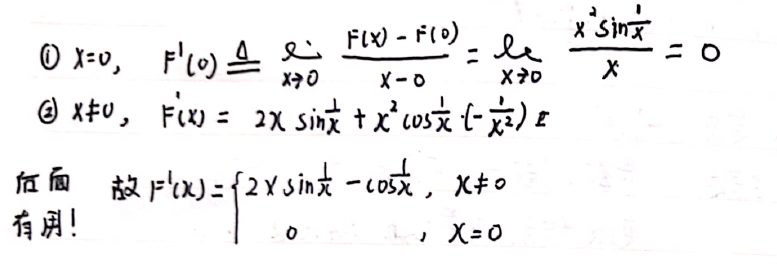 ① x=0, F'(0) ≜ lim_{x→0} \frac{F(x)-F(0)}{x-0} = lim_{x→0} \frac{x^2 sin\frac{1}{x}}{x} = 0
② x≠0, F'(x) = 2x sin\frac{1}{x} + x^2 cos\frac{1}{x}·(-\frac{1}{x^2})
后面有用! 故F'(x)= { 2x sin\frac{1}{x} - cos\frac{1}{x}, x≠0
0, x=0